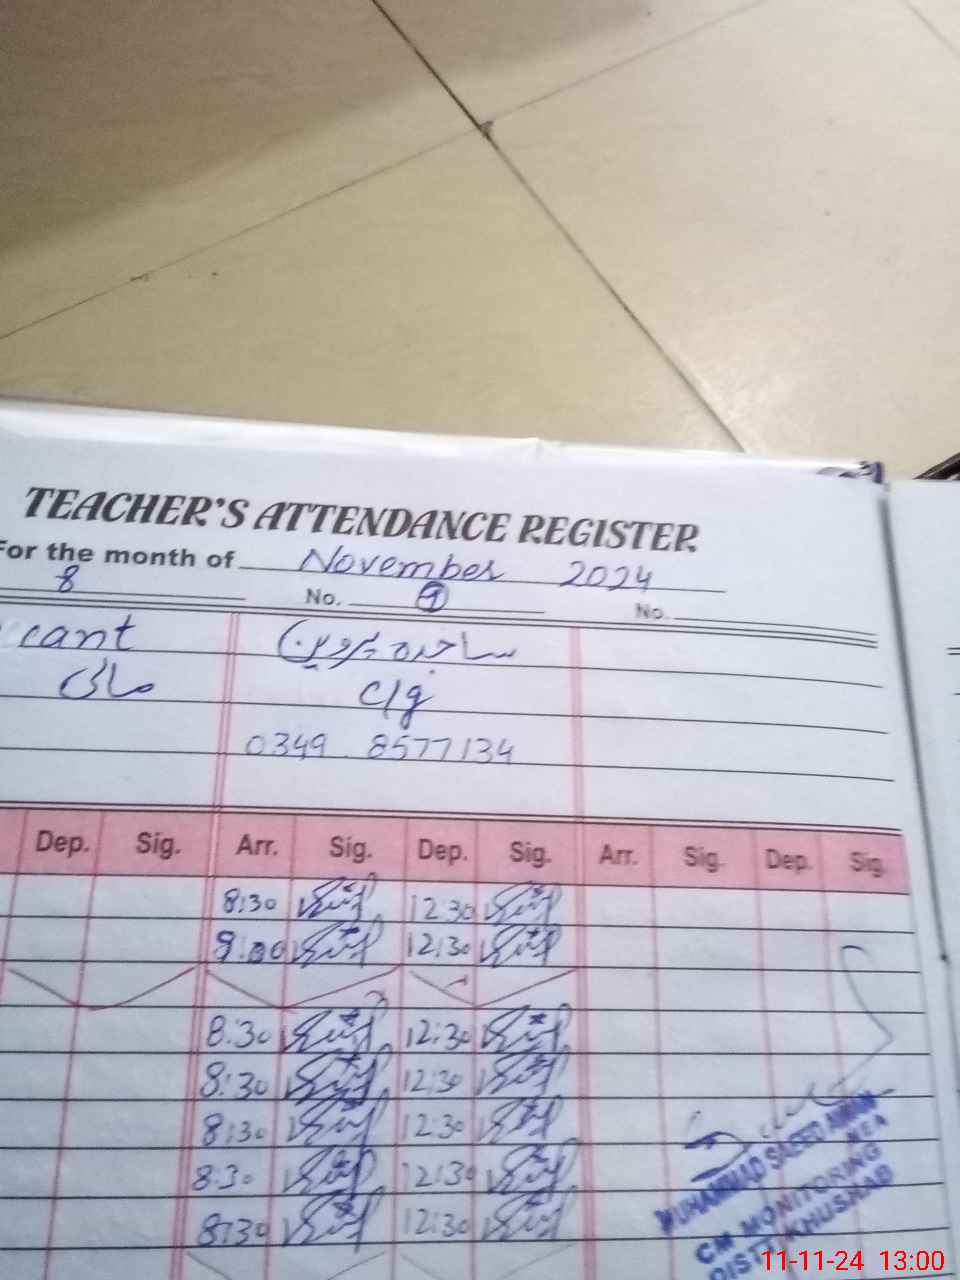 TEACHER'S ATTENDANCE REGISTER
For the month of November 2024
8 No. 9 No.
cant ساجدہ پروین
مالی c/g
0349 8577134
Dep. Sig. Arr. Sig. Dep. Sig. Arr. Sig. Dep. Sig.
8:30 12:30
9:00 12:30
8:30 12:30
8:30 12:30
8:30 12:30
8:30 12:30
8:30 12:30
MUHAMMAD SAEED AWAN
MEA
CM MONITORING
DISTT KHUSHAB
11-11-24 13:00